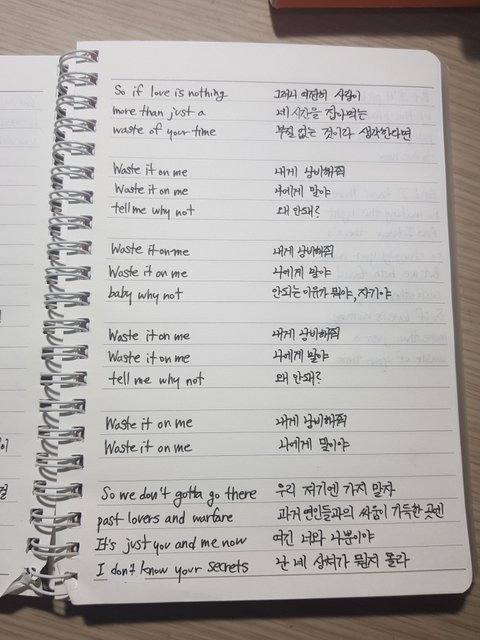 So if love is nothing 그러니 여전히 사랑이
more than just a 네 시간을 잡아먹는
waste of your time 부질 없는 것이라 생각한다면
Waste it on me 내게 낭비해줘
Waste it on me 나에게 말야
tell me why not 왜 안돼?
Waste it on me 내게 낭비해줘
Waste it on me 나에게 말야
baby why not 안되는 이유가 뭐야, 자기야
Waste it on me 내게 낭비해줘
Waste it on me 나에게 말야
tell me why not 왜 안돼?
Waste it on me 내게 낭비해줘
Waste it on me 나에게 말이야
So we don't gotta go there 우리 저기엔 가지 말자
past lovers and warfare 과거 연인들과의 싸움이 가득한 곳엔
It's just you and me now 여긴 너와 나뿐이야
I don't know your secrets 난 네 상처가 뭔지 몰라